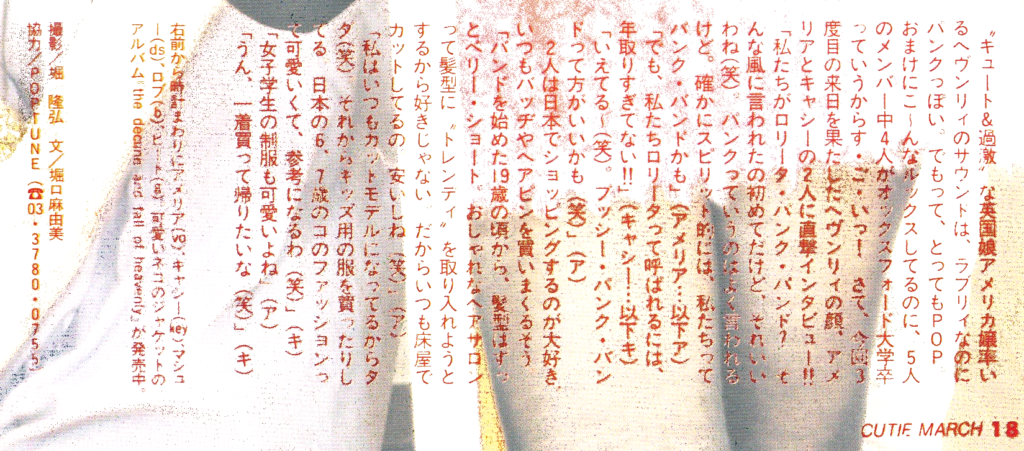 〝キュート&過激〟な英国娘アメリカ嬢率い
るヘヴンリィのサウンドは、ラブリィなのに
パンクっぽい。でもって、とってもPOP
おまけにこ〜んなルックスしてるのに、5人
のメンバー中4人がオックスフォード大学卒
っていうからす・ご・いっ! さて、今回3
度目の来日を果たしたヘヴンリィの顔、アメ
リアとキャシーの2人に直撃インタビュー!!
「私たちがロリータ・パンク・バンド? そ
んな風に言われたの初めてだけど、それいい
わね(笑)。パンクっていうのはよく言われる
けど。確かにスピリット的には、私たちって
パンク・バンドかも」(アメリア…以下ア)
「でも、私たちロリータって呼ばれるには、
年取りすぎてない!!」(キャシー…以下キ)
「いえてる〜(笑)。プッシー・パンク・バン
ドって方がいいかも(笑)」(ア)
2人は日本でショッピングするのが大好き。
いつもバッヂやヘアピンを買いまくるそう
「バンドを始めた19歳の頃から、髪型はずっ
とベリー・ショート。おしゃれなヘアサロン
って髪型に〝トレンディ〟を取り入れようと
するから好きじゃない だからいつも床屋で
カットしてるの 安いしね(笑)」(ア)
「私はいつもカットモデルになってるからタ
ダ(笑) それからキッズ用の服を買ったりし
てる 日本の6、7歳のコのファッションっ
て可愛いくて、参考になるわ(笑)」(キ)
「女子学生の制服も可愛いよね」(ア)
「うん、一着買って帰りたいな(笑)」(キ)
右前から時計まわりにアメリア(vo)、キャシー(key)、マシュ
ー(ds)、ロブ(b)、ピート(g) 可愛いネコのジャケットの
アルバム『the decline and fall of heavenly』が発売中。
撮影/堀 隆弘 文/堀口麻由美
協力/POPTUNE(☎03・3780・0755)
CUTIE MARCH 18